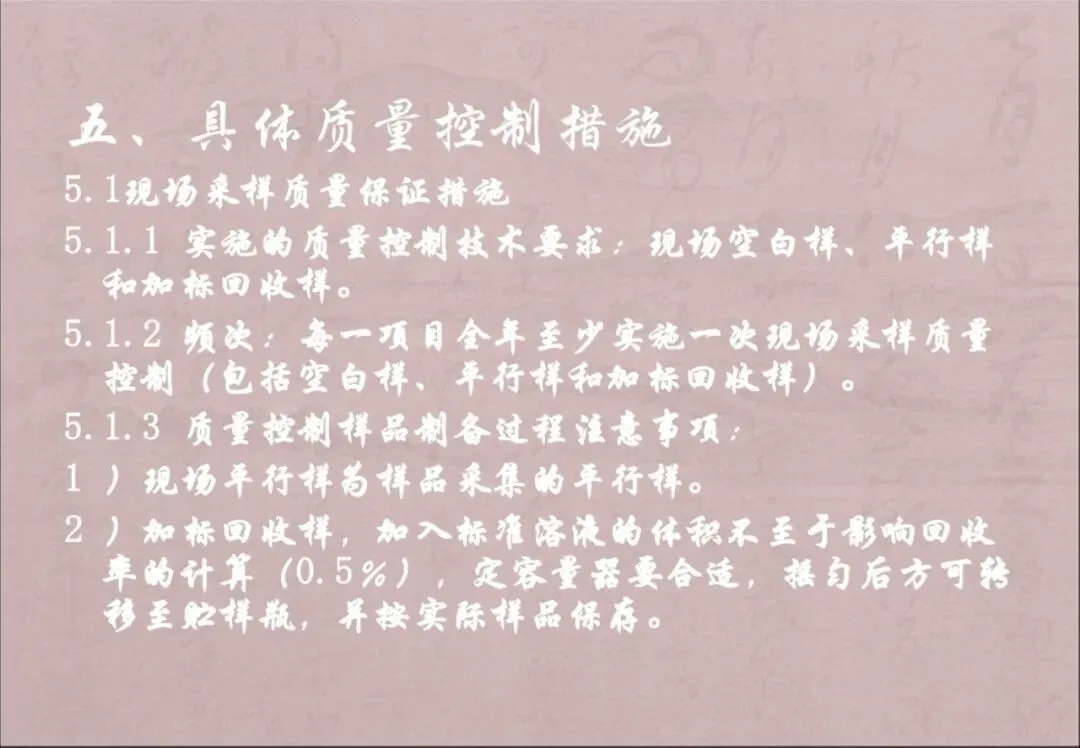 五、具体质量控制措施
5.1现场采样质量保证措施
5.1.1 实施的质量控制技术要求：现场空白样、平行样
和加标回收样。
5.1.2 频次：每一项目全年至少实施一次现场采样质量
控制（包括空白样、平行样和加标回收样）。
5.1.3 质量控制样品制备过程注意事项：
1 ）现场平行样为样品采集的平行样。
2 ）加标回收样，加入标准溶液的体积不至于影响回收
率的计算（0.5％），定容量器要合适，摇匀后方可转
移至贮样瓶，并按实际样品保存。